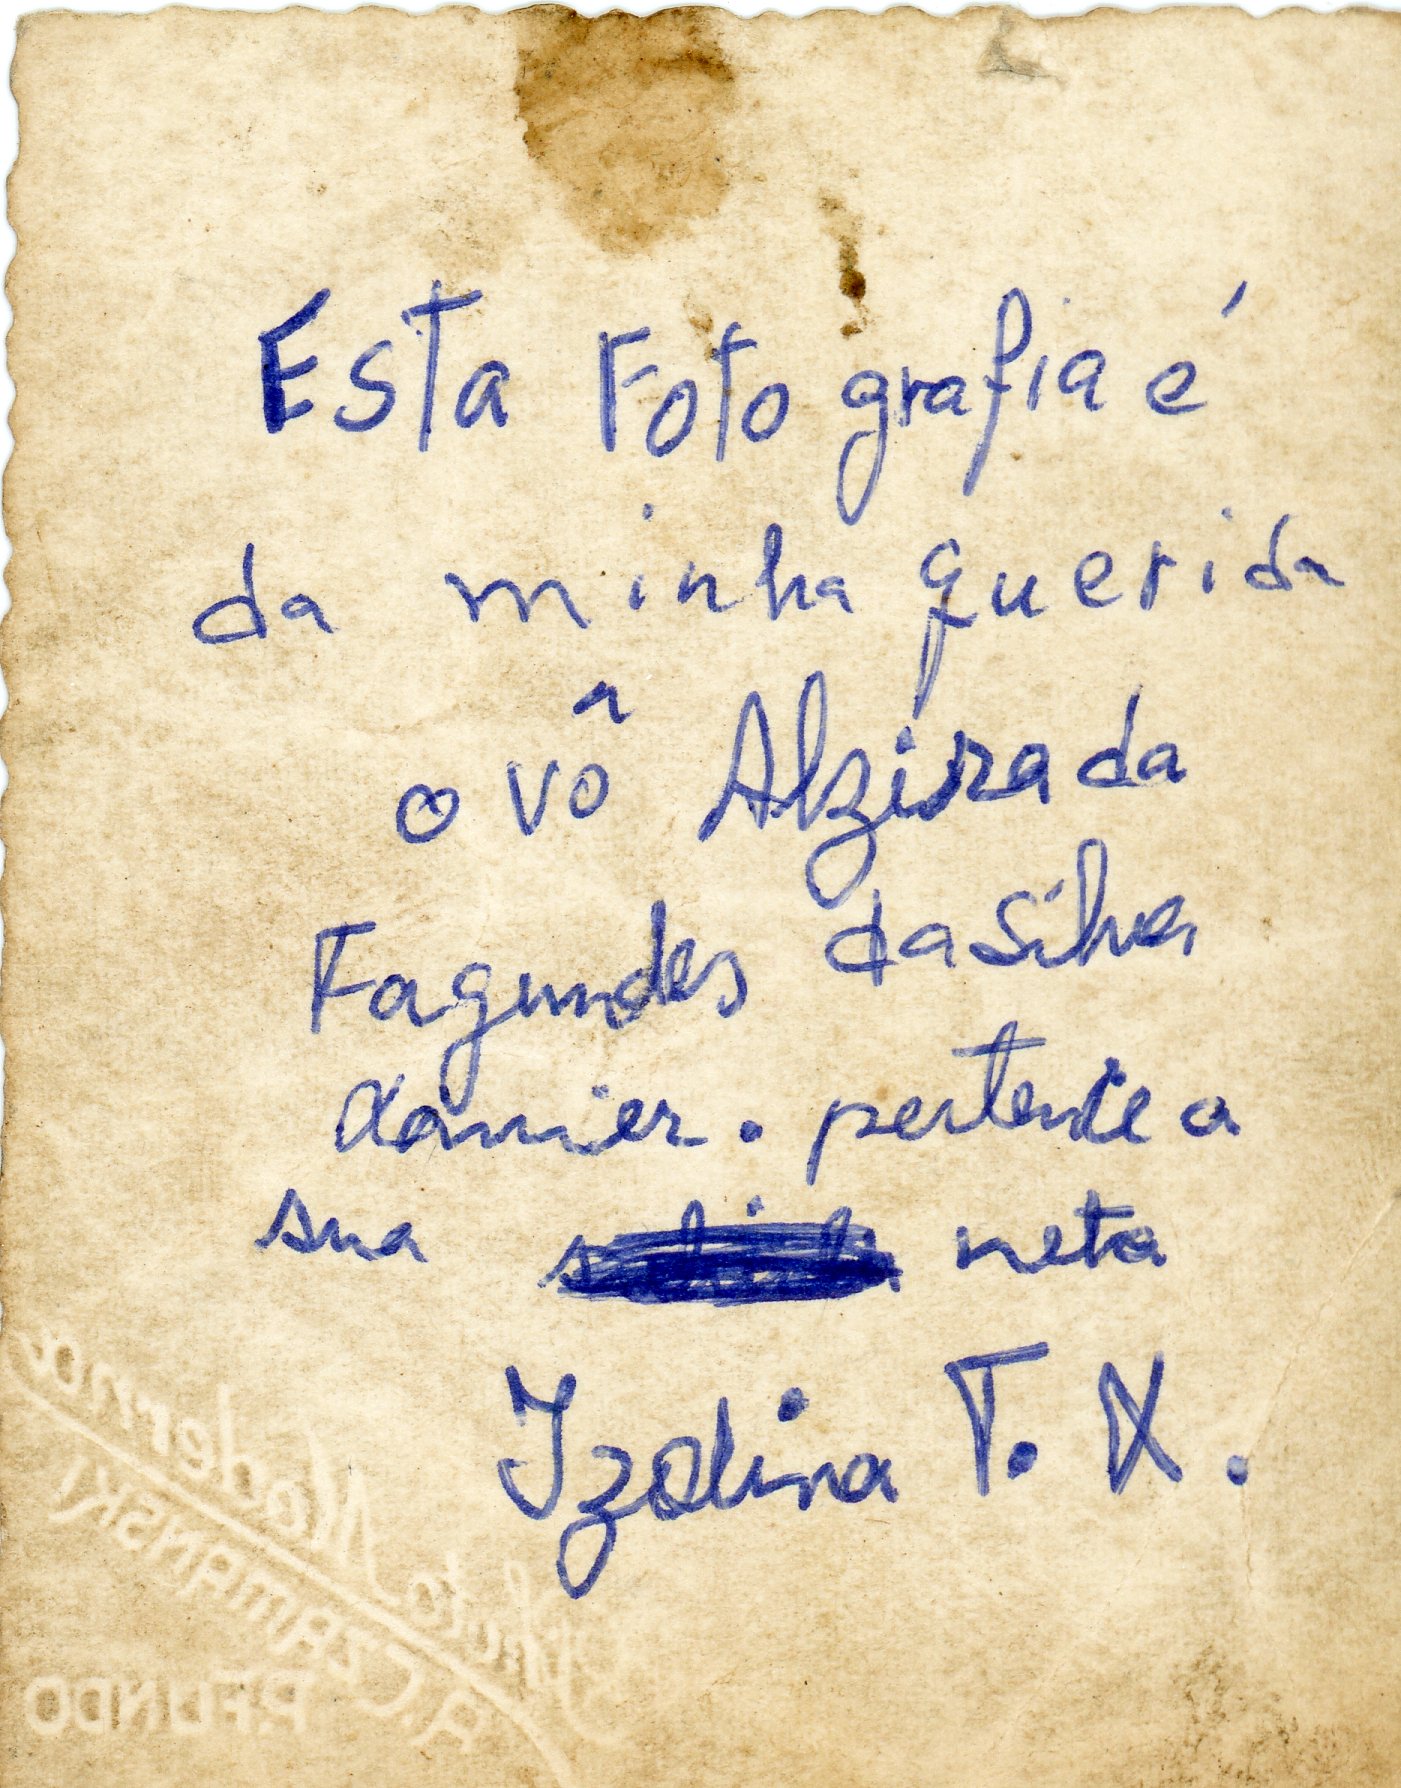 Esta Fotografia é
da minha querida
o vô Alzira da
Fagundes da Silva
Xavier. pertence a
sua neta
Izolina T. X.
Photo Moderna
A. CZAMANSKI
P. FUNDO